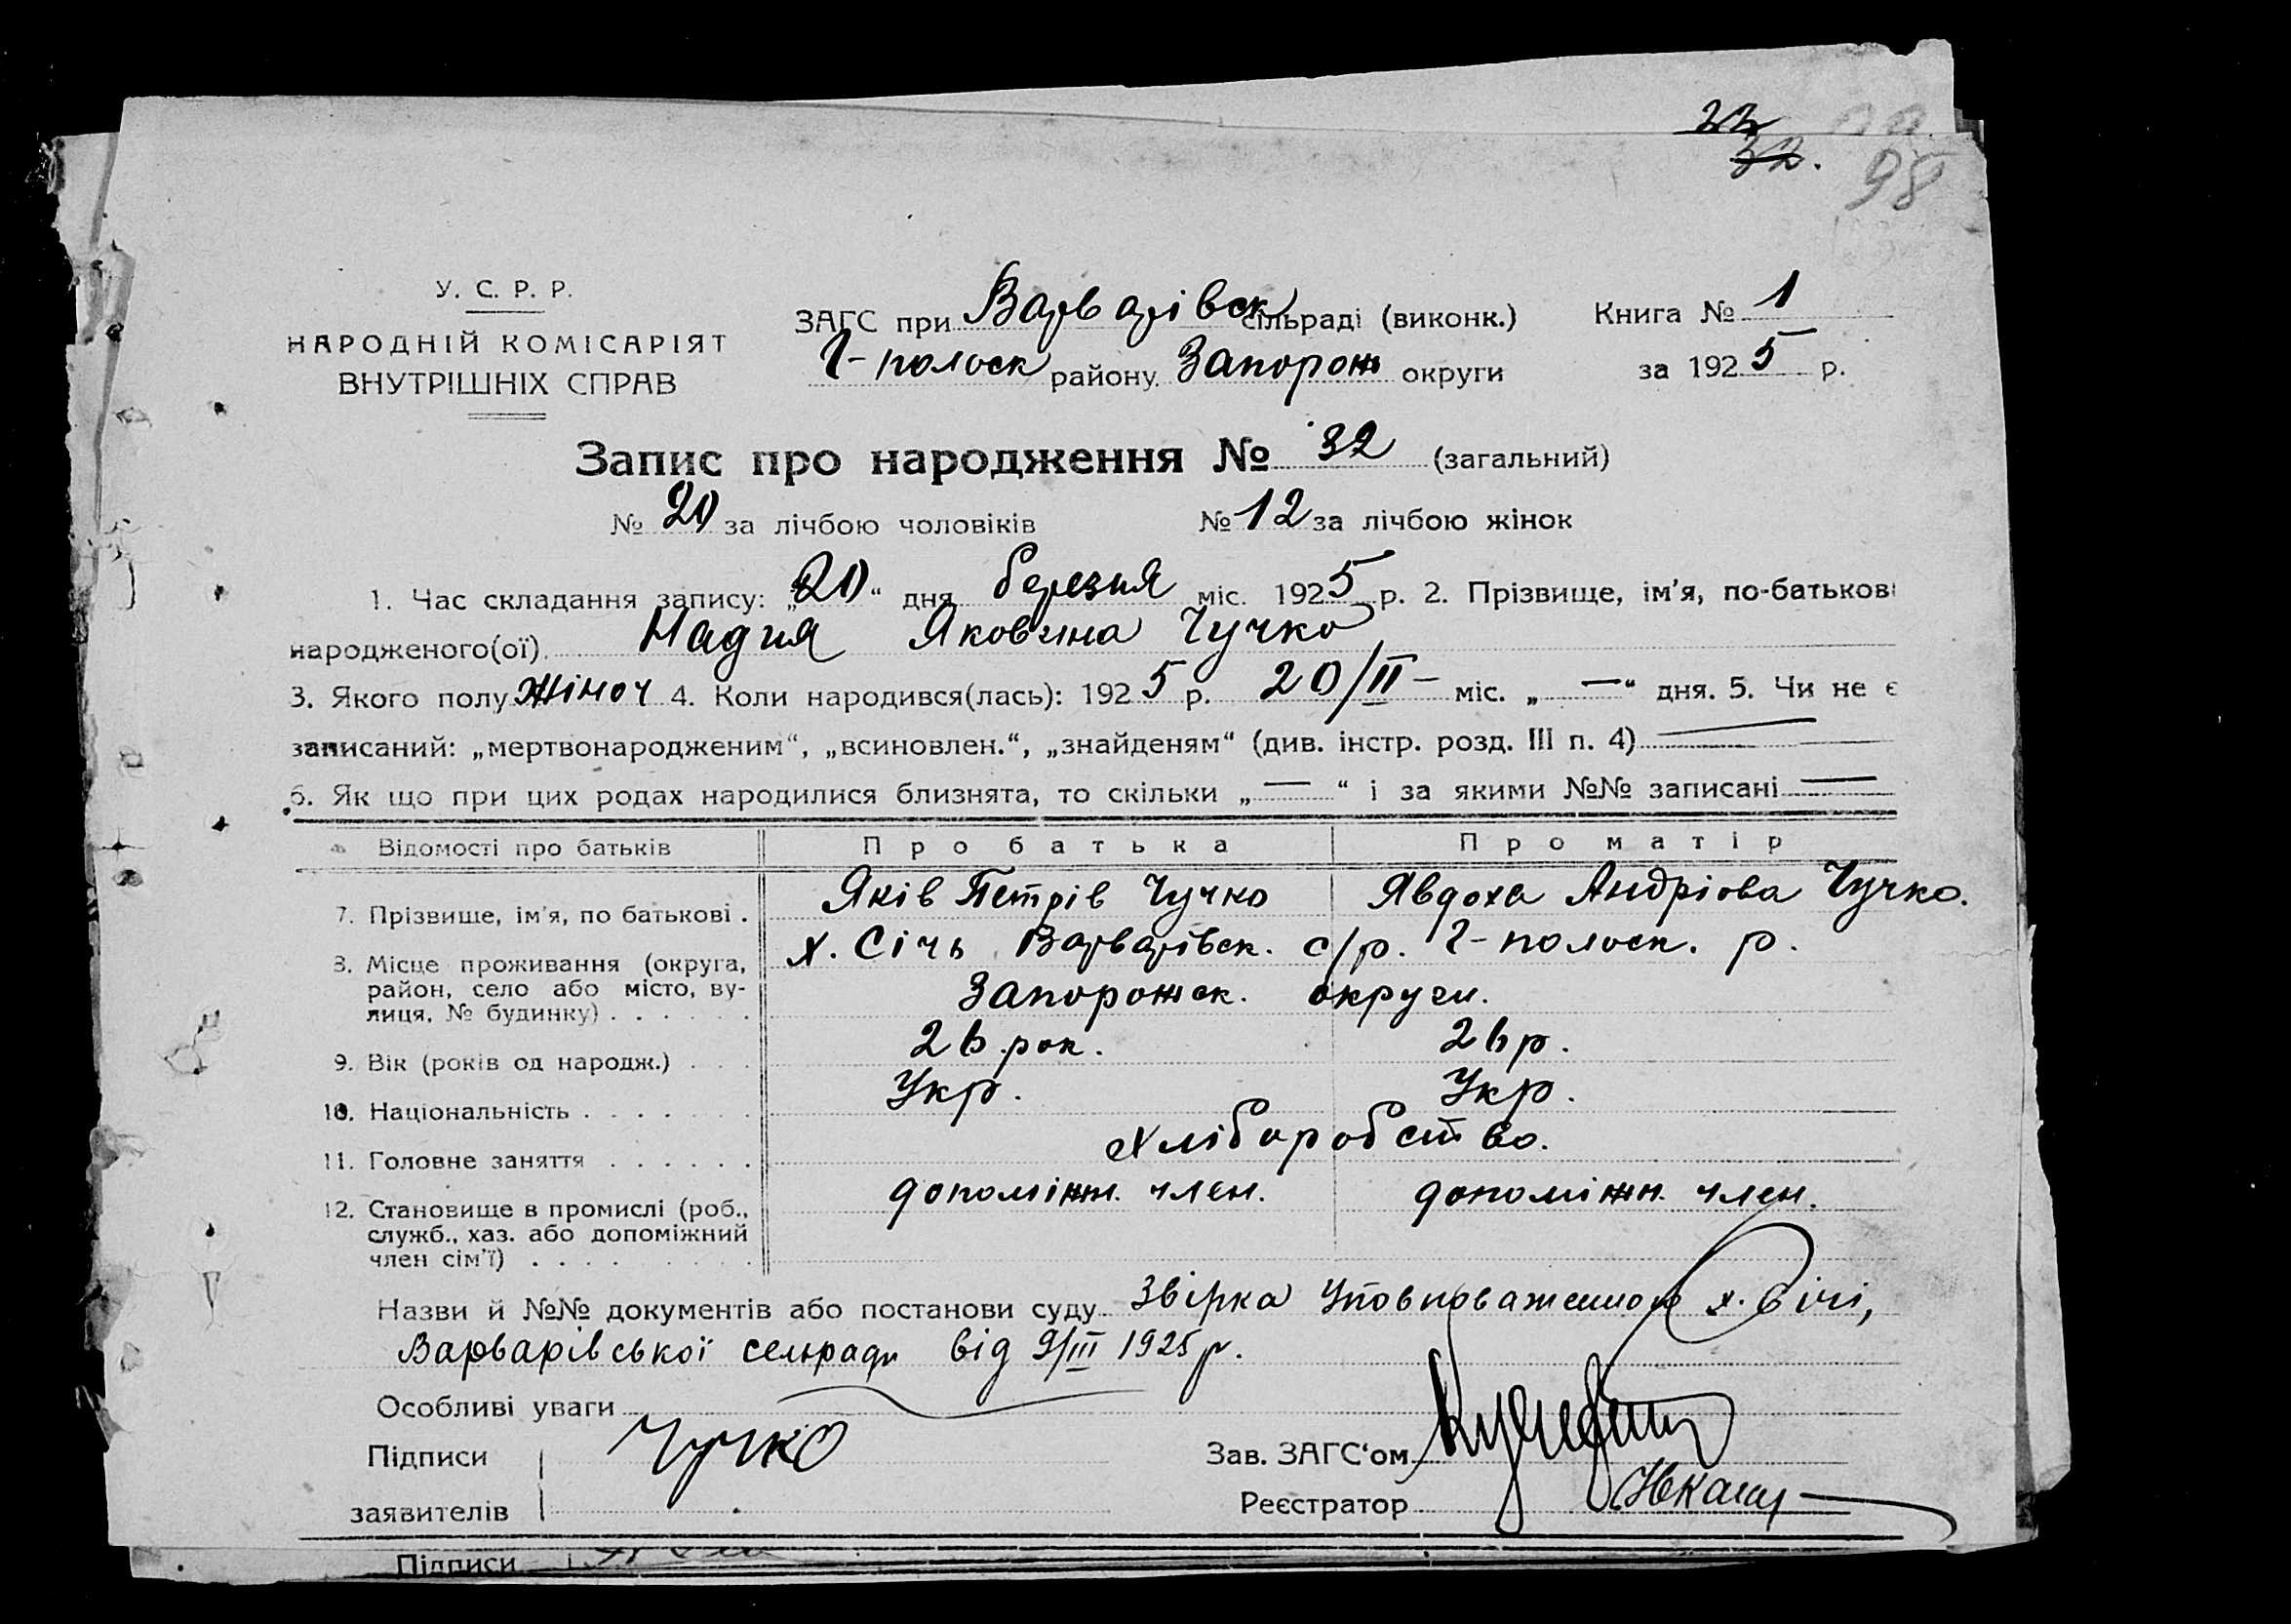 22
32.
98
У. С. Р. Р.
НАРОДНІЙ КОМІСАРІЯТ
ВНУТРІШНІХ СПРАВ
ЗАГС при Варварівск сільраді (виконк.) Книга № 1
Г-полоск району Запорож округи за 1925 р.
Запис про народження № 32 (загальний)
№ 20 за лічбою чоловіків № 12 за лічбою жінок
1. Час складання запису: „20“ дня березня міс. 1925 р. 2. Прізвище, ім'я, по-батькові
народженого(ої). Надия Яковина Чучко
3. Якого полу жіноч 4. Коли народився(лась): 1925 р. 20/II – міс. „—“ дня. 5. Чи не є
записаний: „мертвонародженим“, „всиновлен.“, „знайденям“ (див. інстр. розд. III п. 4) —
6. Як що при цих родах народилися близнята, то скільки „—“ і за якими №№ записані —
Відомості про батьків Про батька Про матір
7. Прізвище, ім'я, по батькові . Яків Петрів Чучко Явдоха Андріова Чучко.
8. Місце проживання (округа, х. Січь Варварівск. с/р. Г-полоск. р.
район, село або місто, ву- Запорожск. округи.
лиця, № будинку) . . . . . .
9. Вік (років од народж.) . . . 26 рок. 26 р.
10. Національність . . . . . . . Укр. Укр.
11. Головне заняття . . . . . . Хліборобство.
12. Становище в промислі (роб., допоміжн. член. допоміжн. член.
служб., хаз. або допоміжний
член сім'ї) . . . . . . . . .
Назви й №№ документів або постанови суду Звірка Уповноваженного х. Січі,
Варварівської сельради від 9/III 1925 р.
Особливі уваги
Підписи Чучко Зав. ЗАГС‘ом
заявителів Реєстратор
Підписи